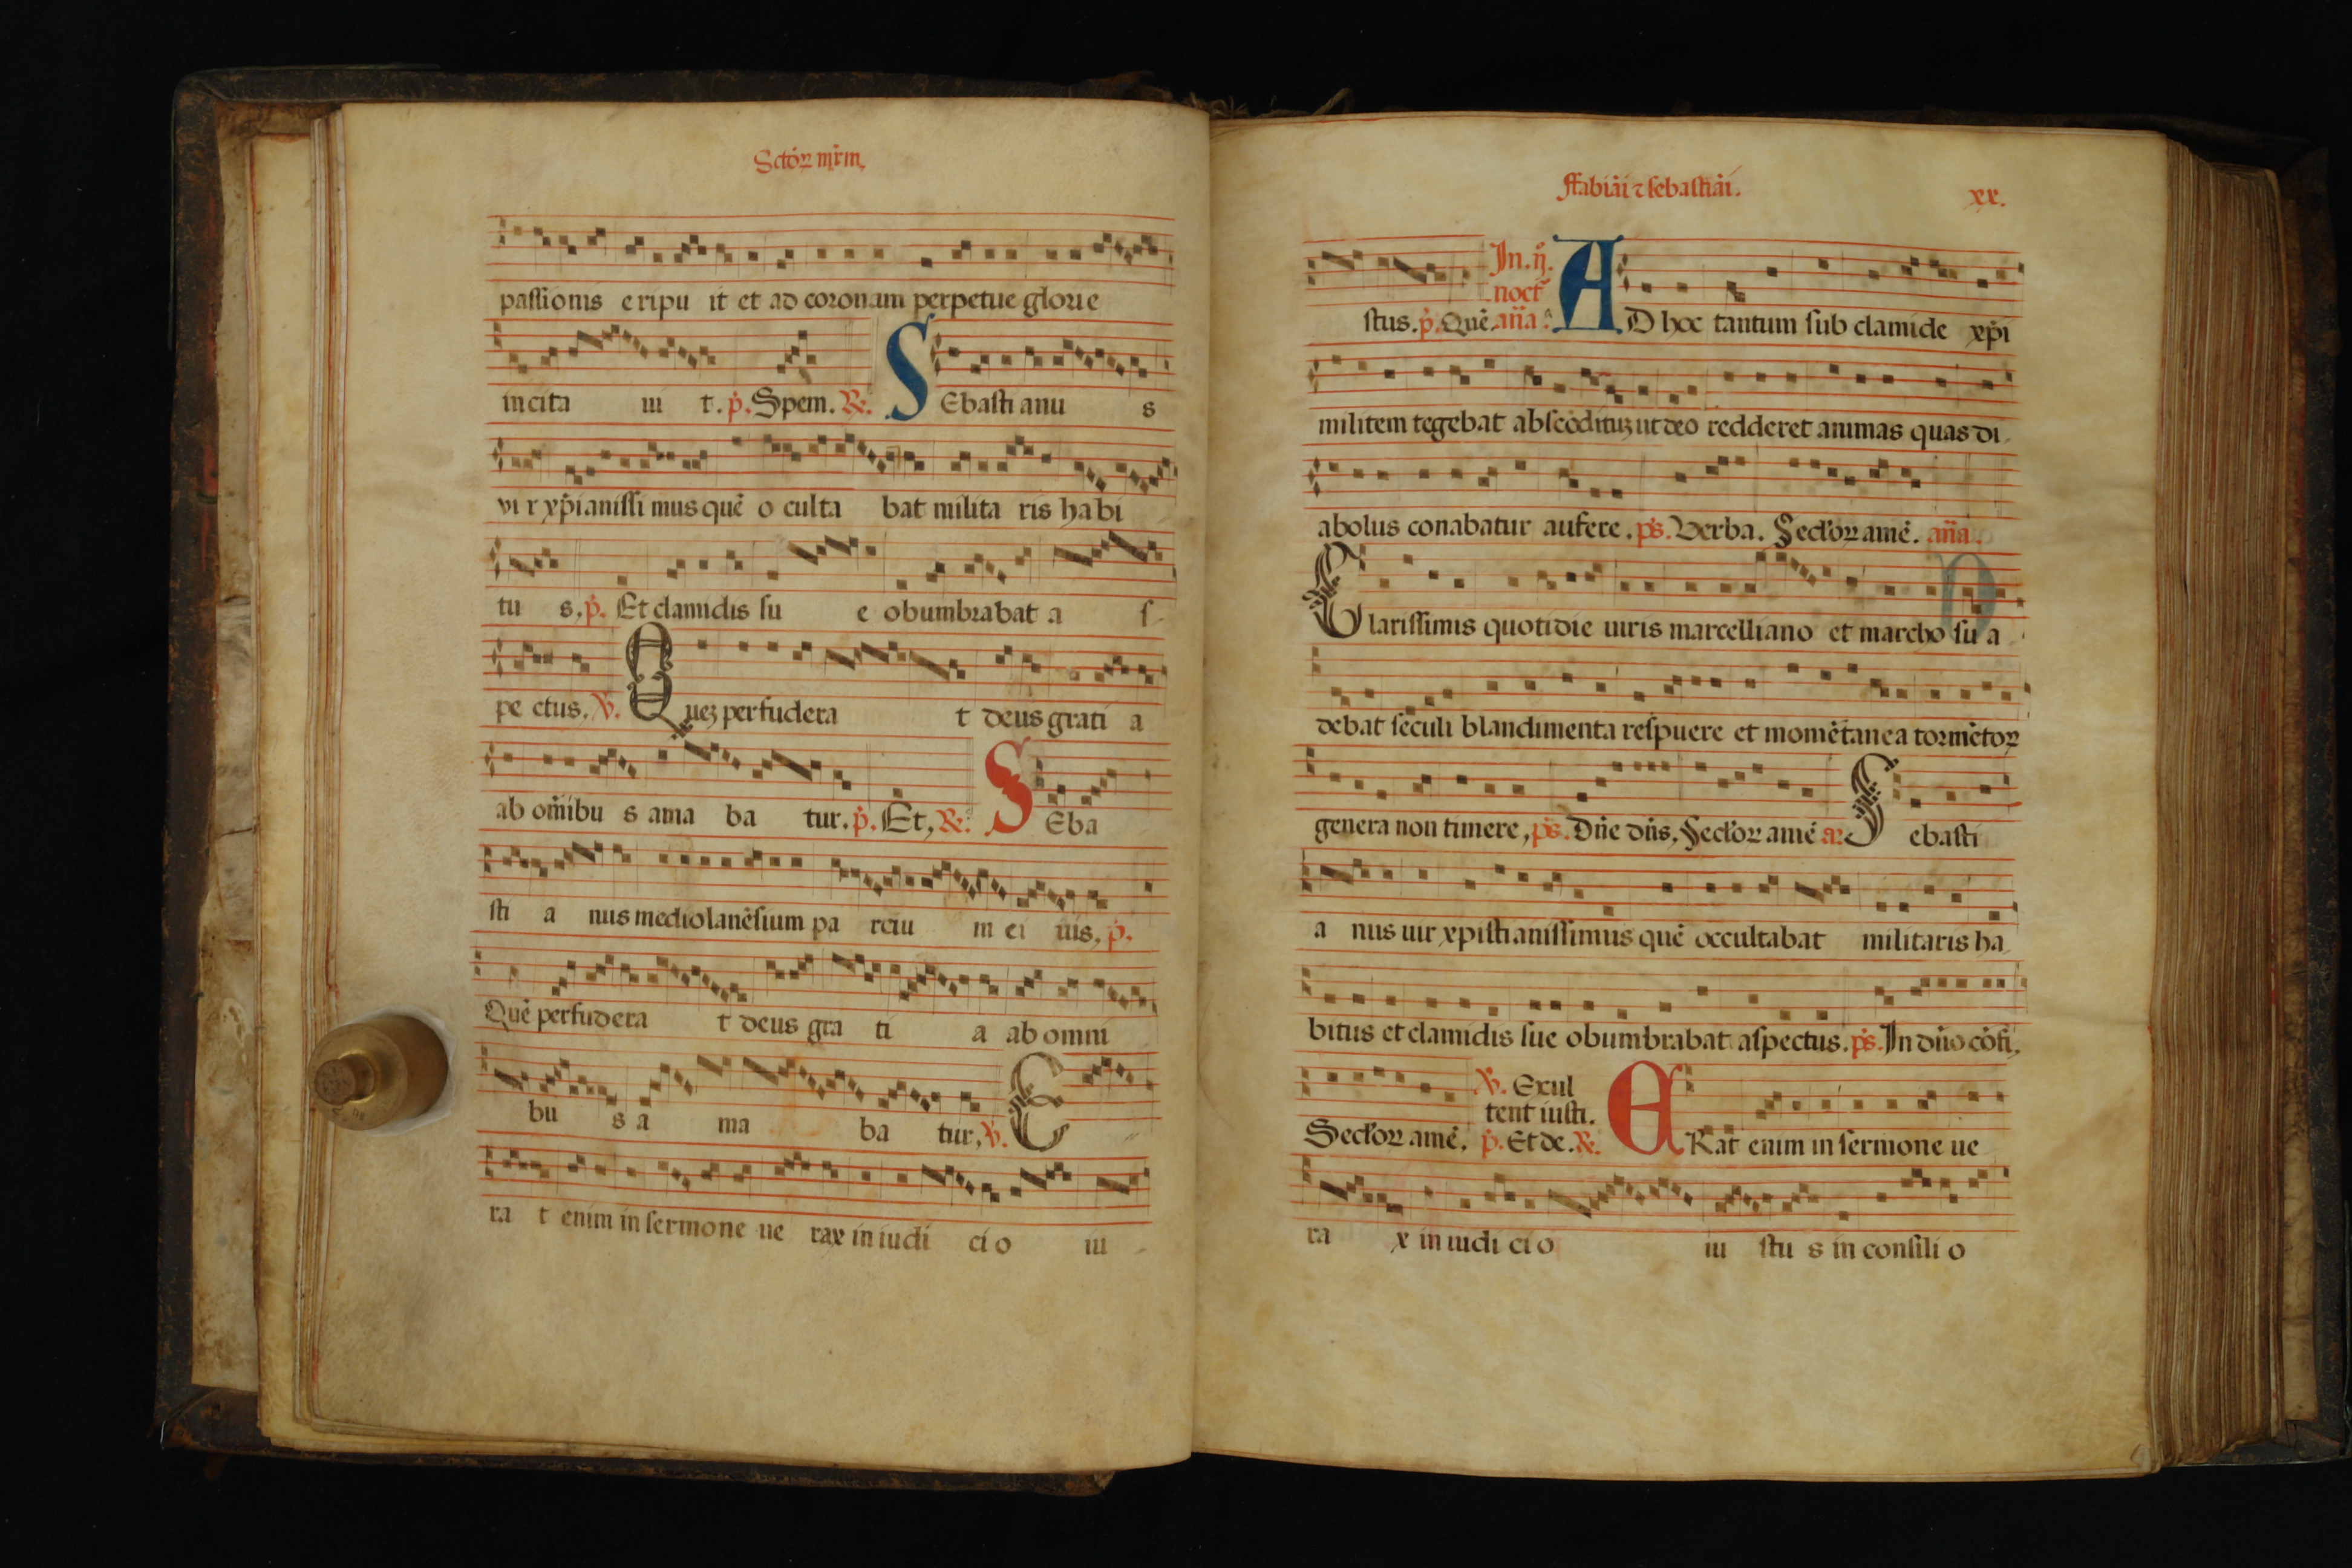 Sctoꝝ mr̄m,
passionis eripu it et ad coronam perpetue glorie
incita ui t. p̄. Spem. ℟.
S Ebasti anu s
vi r xp̄ianissi mus quē o culta bat milita ris habi
tu s, p̄. Et clamidis su e obumbrabat a s-
pe ctus. ℣. Q ueꝫ perfudera t deus grati a
ab om̄ibu s ama ba tur. p̄. Et, ℟. S Eba
sti a nus mediolanēsium pa rciu m ci uis, p̄.
Quē perfudera t deus gra ti a ab omni
bu s a ma ba tur, ℣. E
ra t enim in sermone ue rax in iudi ci o iu -
ffabiāi ⁊ sebastiāi. xx.
stus. p̄. Quē. an̄a. In. ij. noct̄ A D hoc tantum sub clamide xp̄i
militem tegebat abscōdituꝫ ut deo redderet animas quas di-
abolus conabatur aufere. ps. Verba. Seclor amē. an̄a.
C larissimis quotidie uiris marcelliano et marcho su a -
debat seculi blandimenta respuere et momētanea tormētoꝝ
genera non timere, ps. Dn̄e dn̄s, Seclor amē a: S ebasti
a nus uir xpistianissimus quē occultabat militaris ha-
bitus et clamidis sue obumbrabat aspectus. ps. In dn̄o cōfi,
Seclor amē. ℣. Exul
tent iusti.
p̄. Et de. ℟. E Rat enim in sermone ue
ra x in iudi ci o iu stu s in consili o